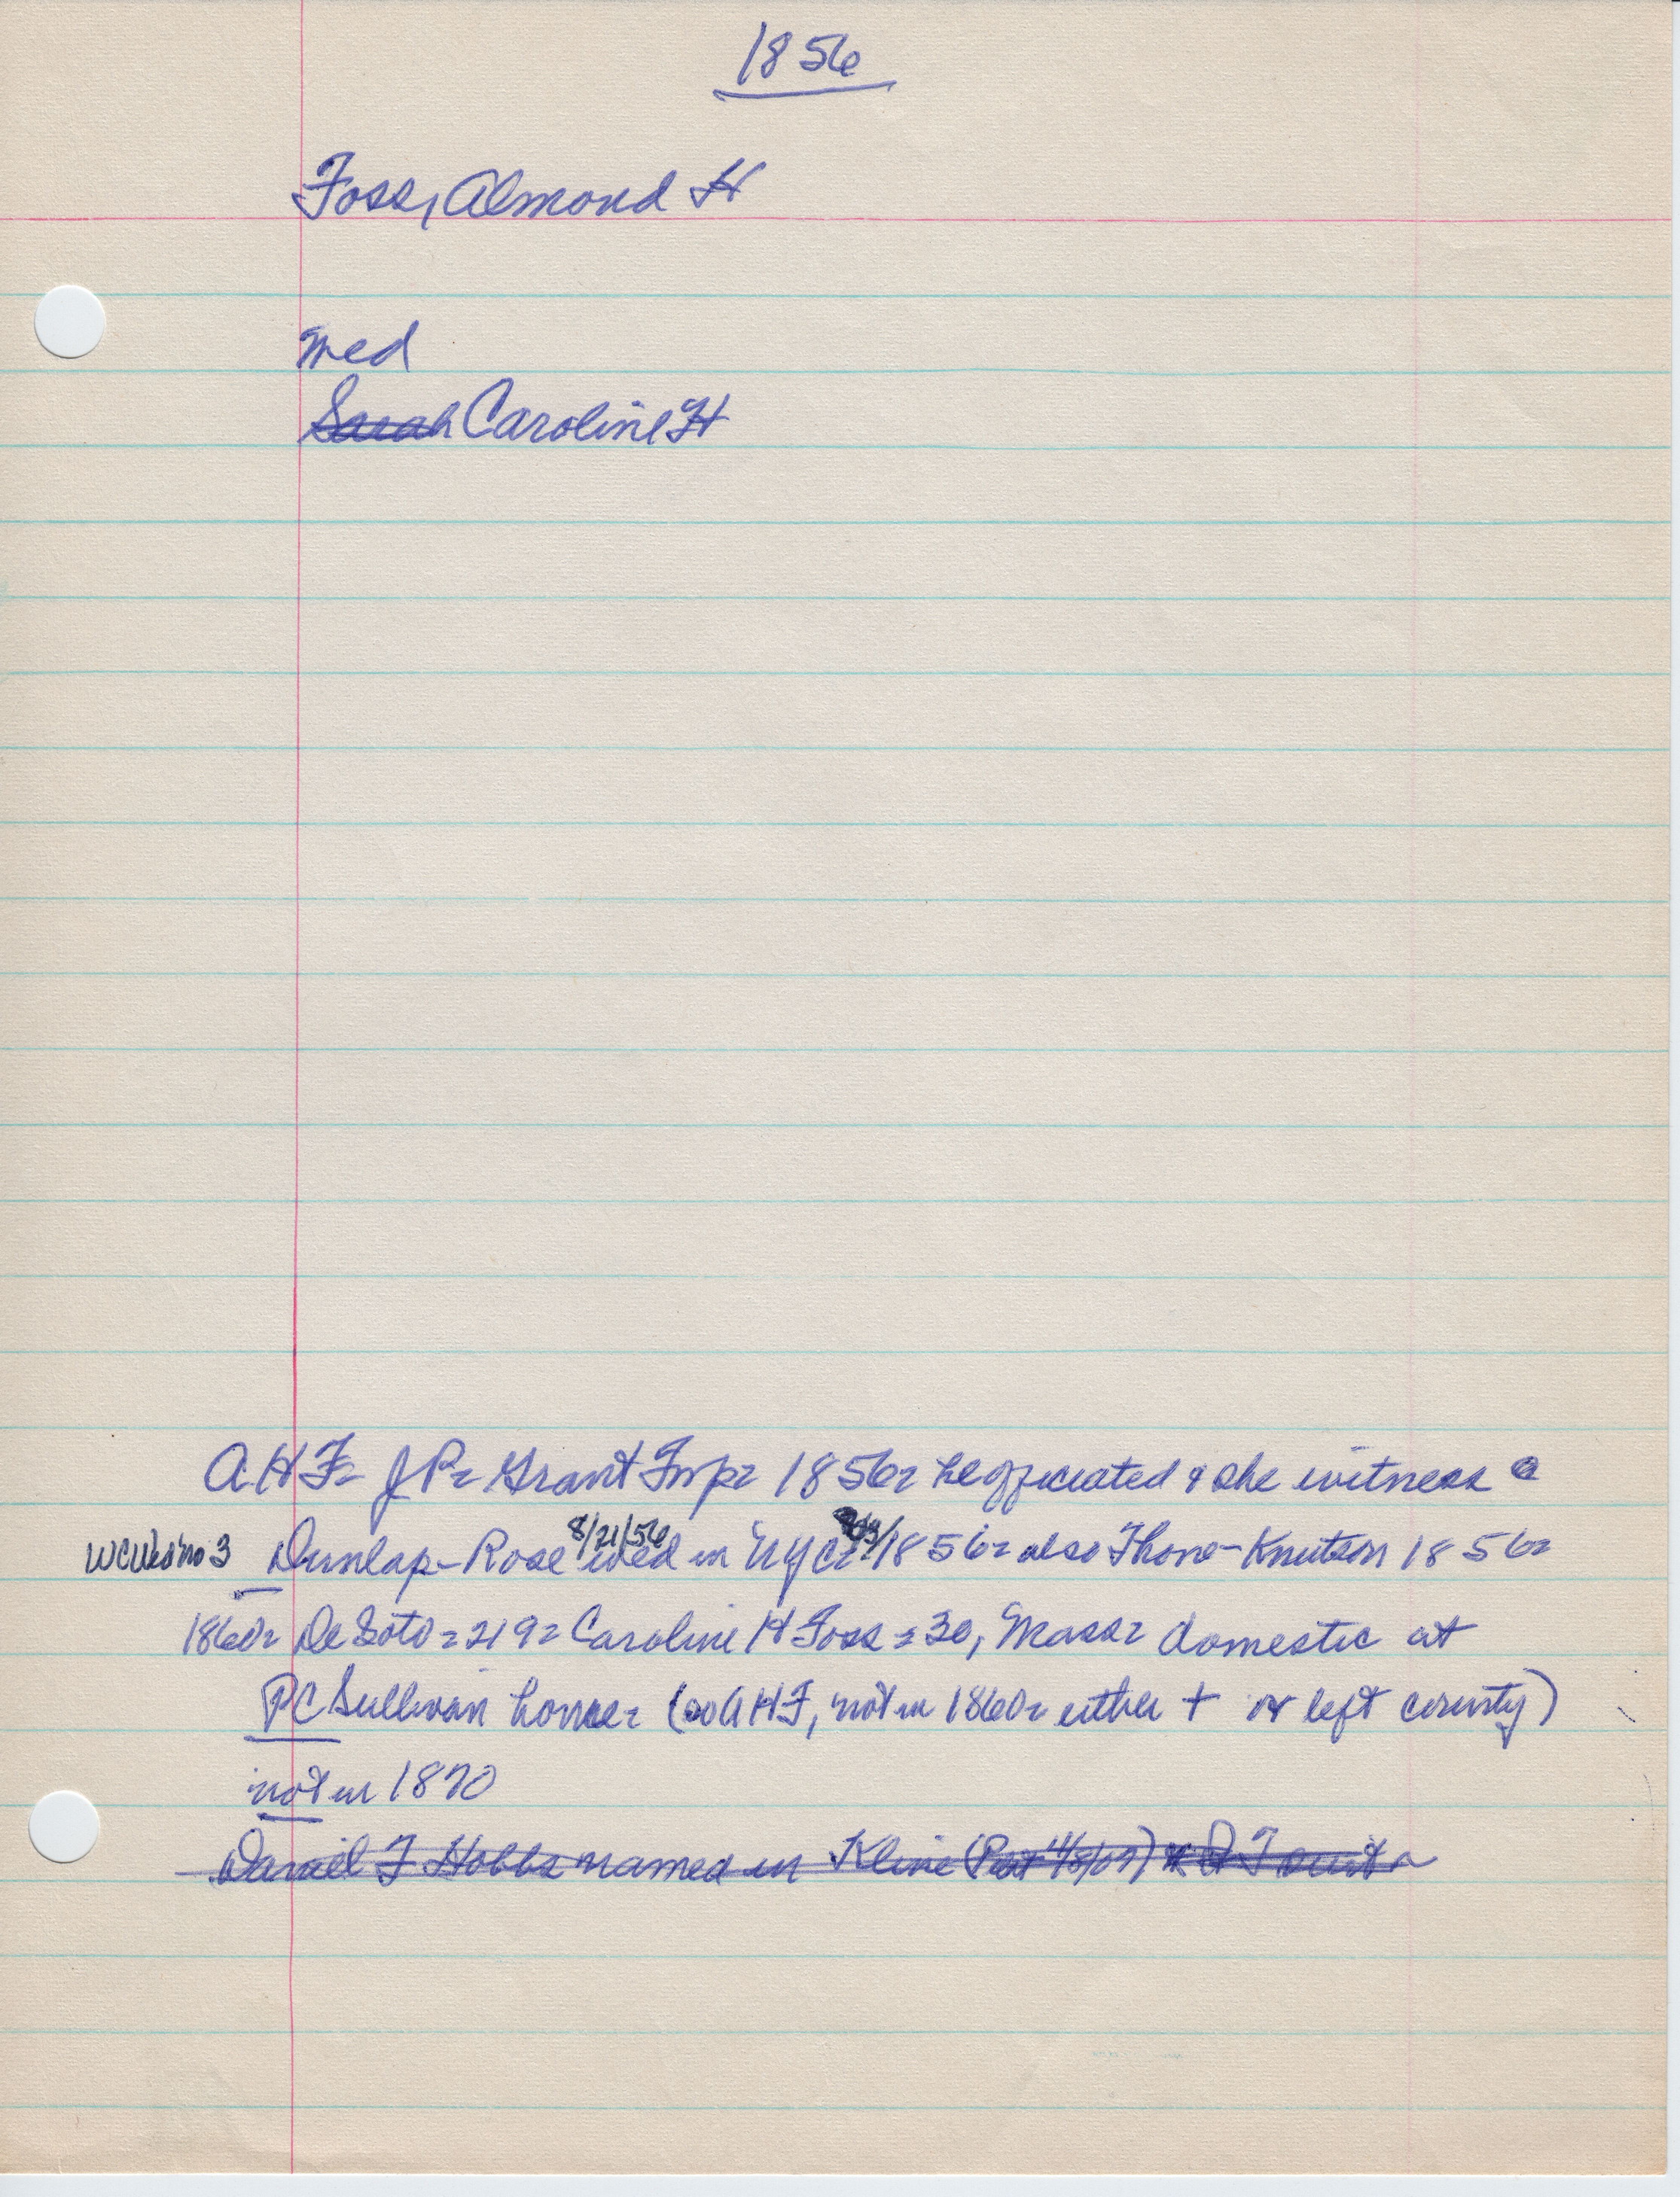 1856
Foss, Almond H
med
Sarah Caroline H
A.H.F= J P= Grant Twp= 1856= he officiated & she witness @
8/21/56
WC Wed no 3 Dunlap-Rose wed in NYC= 1856= also Thone-Knutson 1856=
1860= DeSoto=219= Caroline H Foss=30, Mass= domestic at
PC Sullivan home= (so AHF, not in 1860= either + or left county)
not in 1870
Daniel F Hobbs named in Kline (Post 11/5/07)